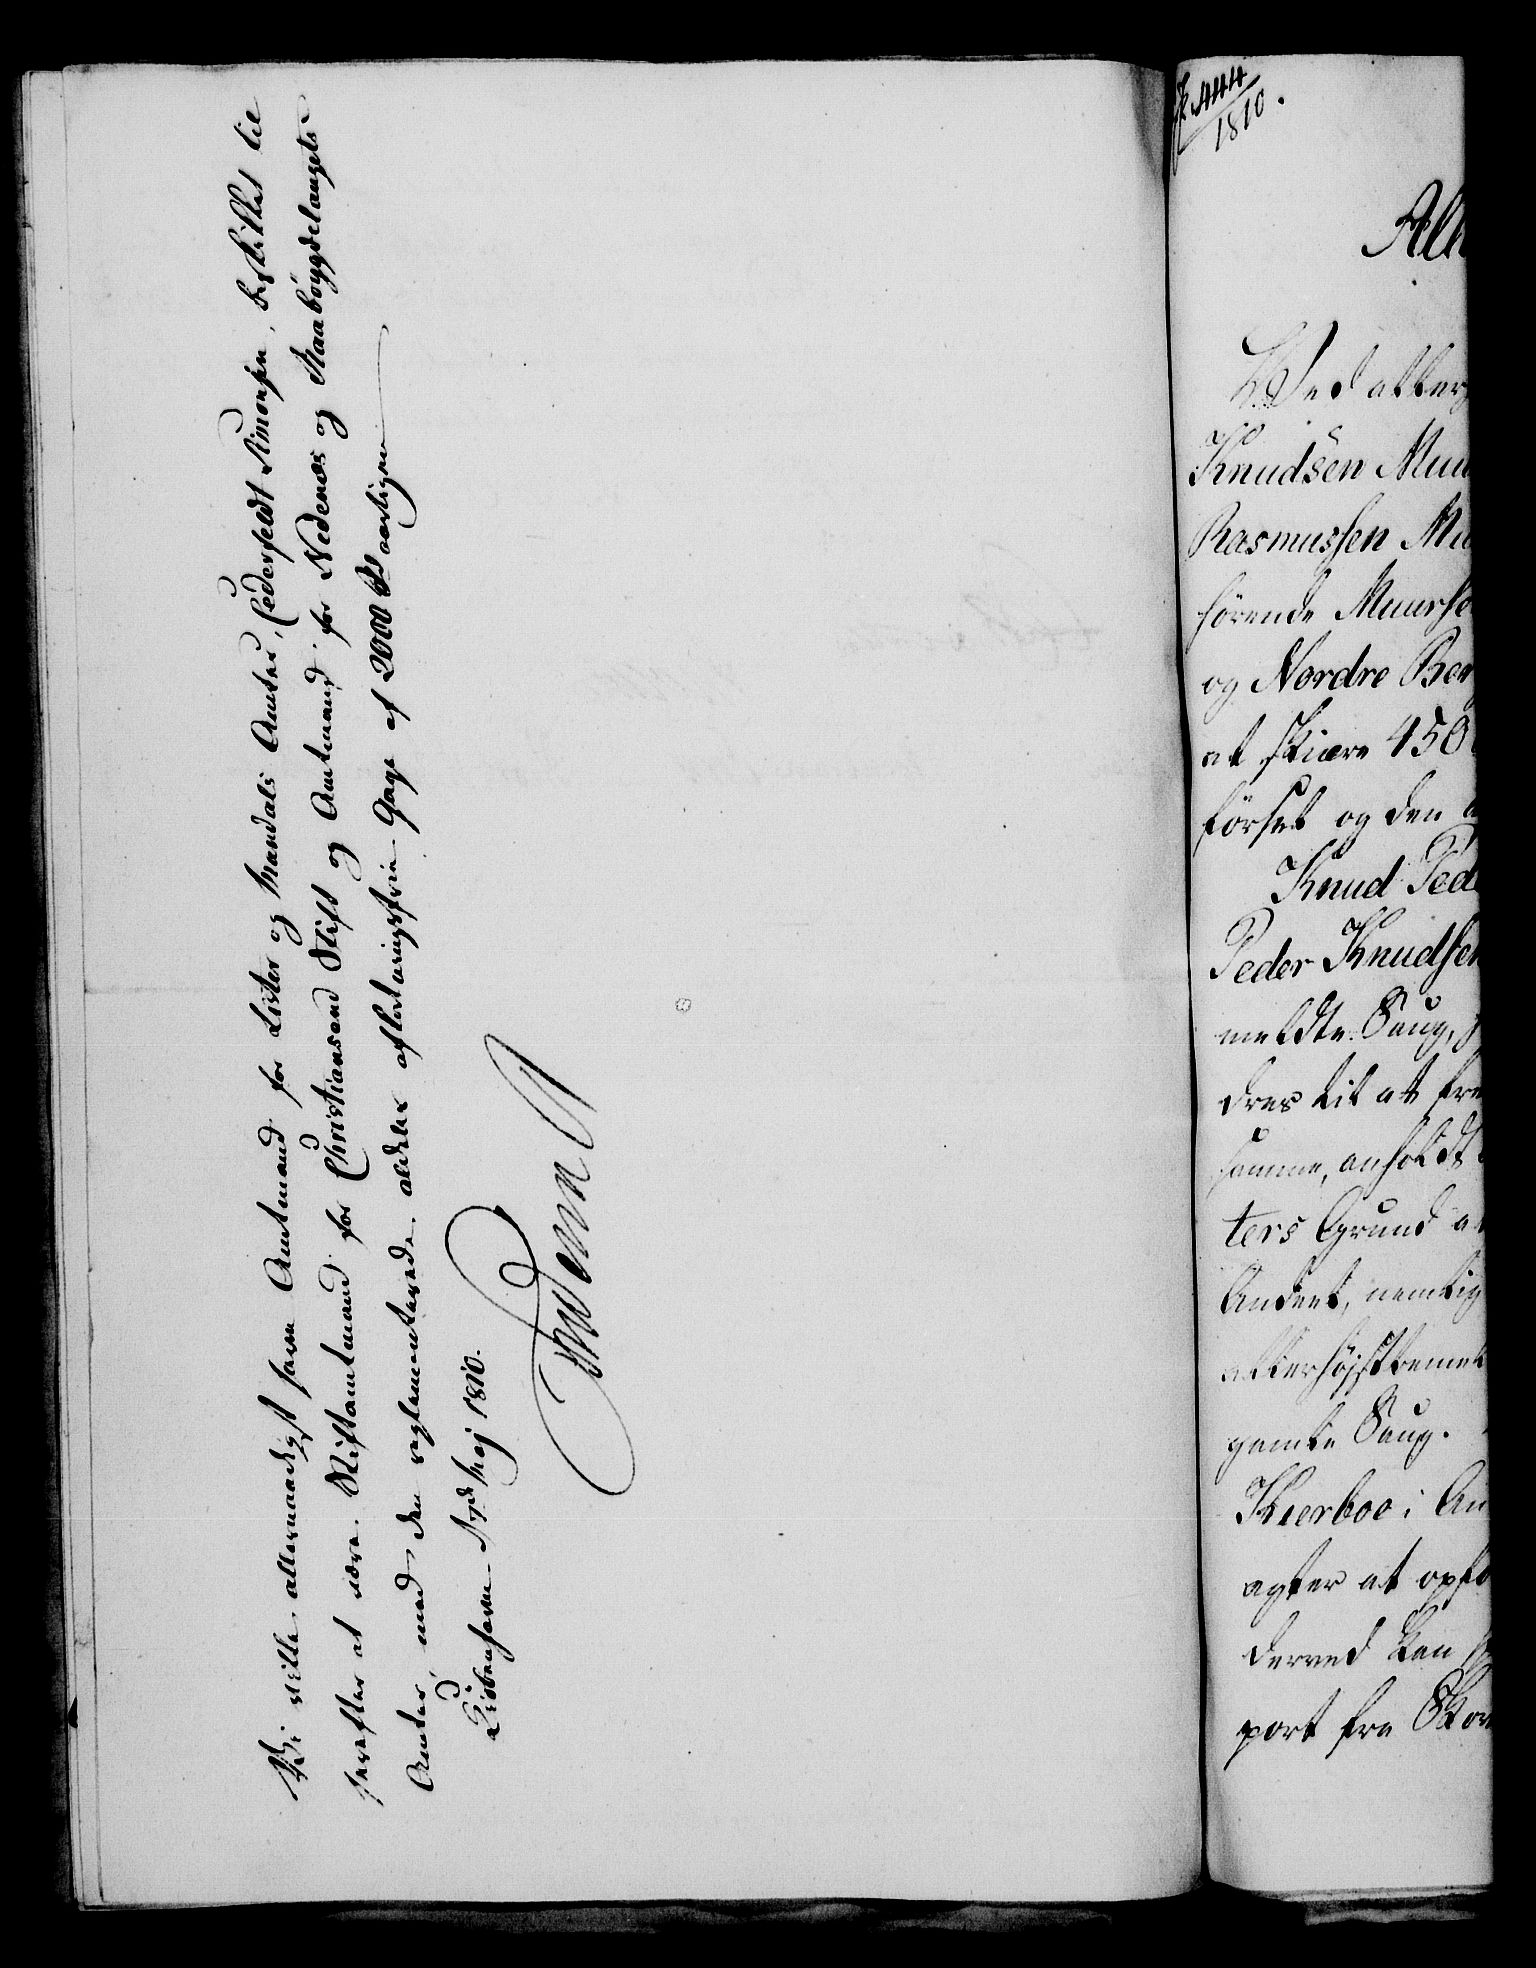 Vi ville allernaadigst have Amtmand for Lister og Mandals Amter, Cederfeldt Simonsen, beskikket til
herefter at være Stiftamtmand for Christiansand Stift og Amtmand for Nedenes og Raabøygdelaugets
Amter, med den reglementerede, aldeles afkortningsfrie Gage af 2000 rd aarligen.
Kiøbenhavn Maj 1810.
444
1810.
Alle
Ved aller
Knudsen Muu
Rasmussen Mu
hørende Muurho
og Nordre Ber
at skiære 450
hørset og den
Knud Pede
Peder Knudsen
meldte Saug,
dres til at fre
samme, anholdt
ters Grund
Andeet, nemlig
allerhøjstbemel
gamle Saug.
Kierboe i An
agter at opfø
derved kan
port fra Skov